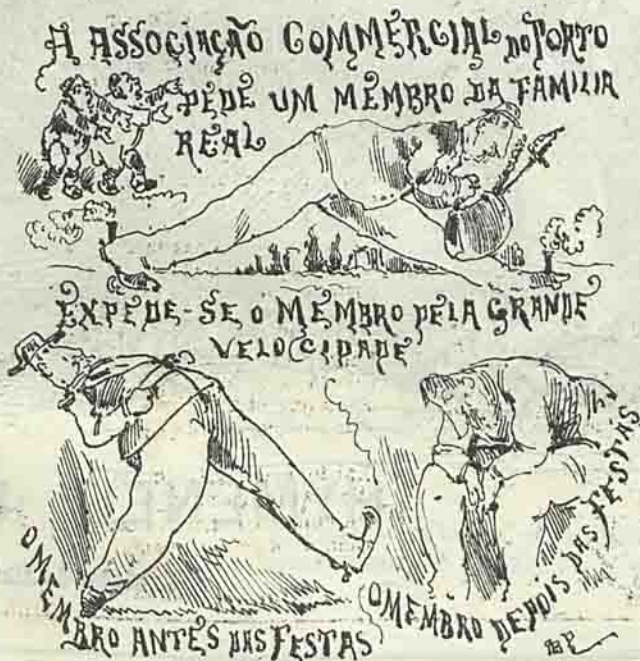 A ASSOCIAÇÃO COMMERCIAL DO PORTO
PEDE UM MEMBRO DA FAMILIA
REAL
EXPEDE-SE O MEMBRO PELA GRANDE
VELOCIDADE
O MEMBRO ANTES DAS FESTAS
O MEMBRO DEPOIS DAS FESTAS